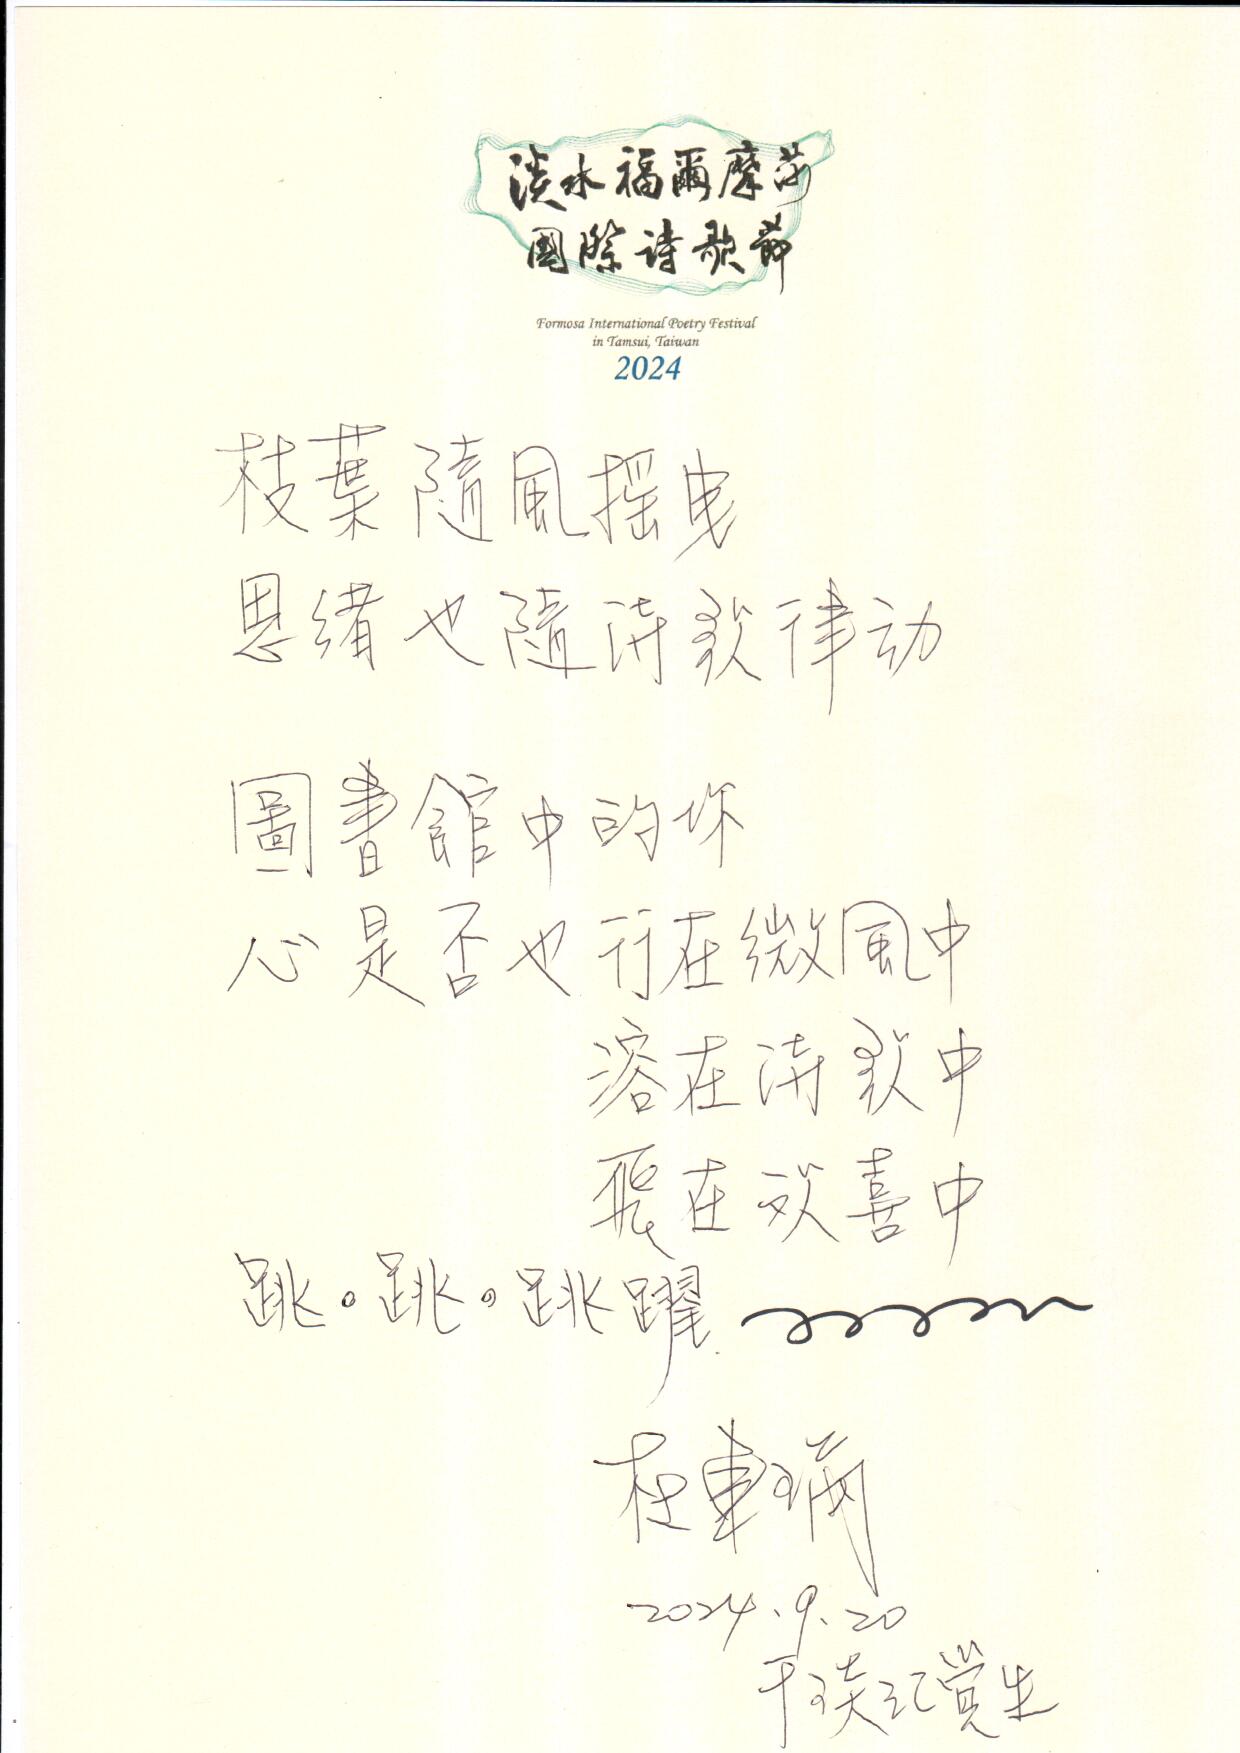 淡水福爾摩莎
國際詩歌節
Formosa International Poetry Festival
in Tamsui, Taiwan
2024
枝葉隨風搖曳
思緒也隨詩歌律动
圖書館中的你
心是否也行在微風中
溶在詩歌中
飛在歡喜中
跳。跳。跳躍
杜東璊
2024.9.20
于淡江覺生